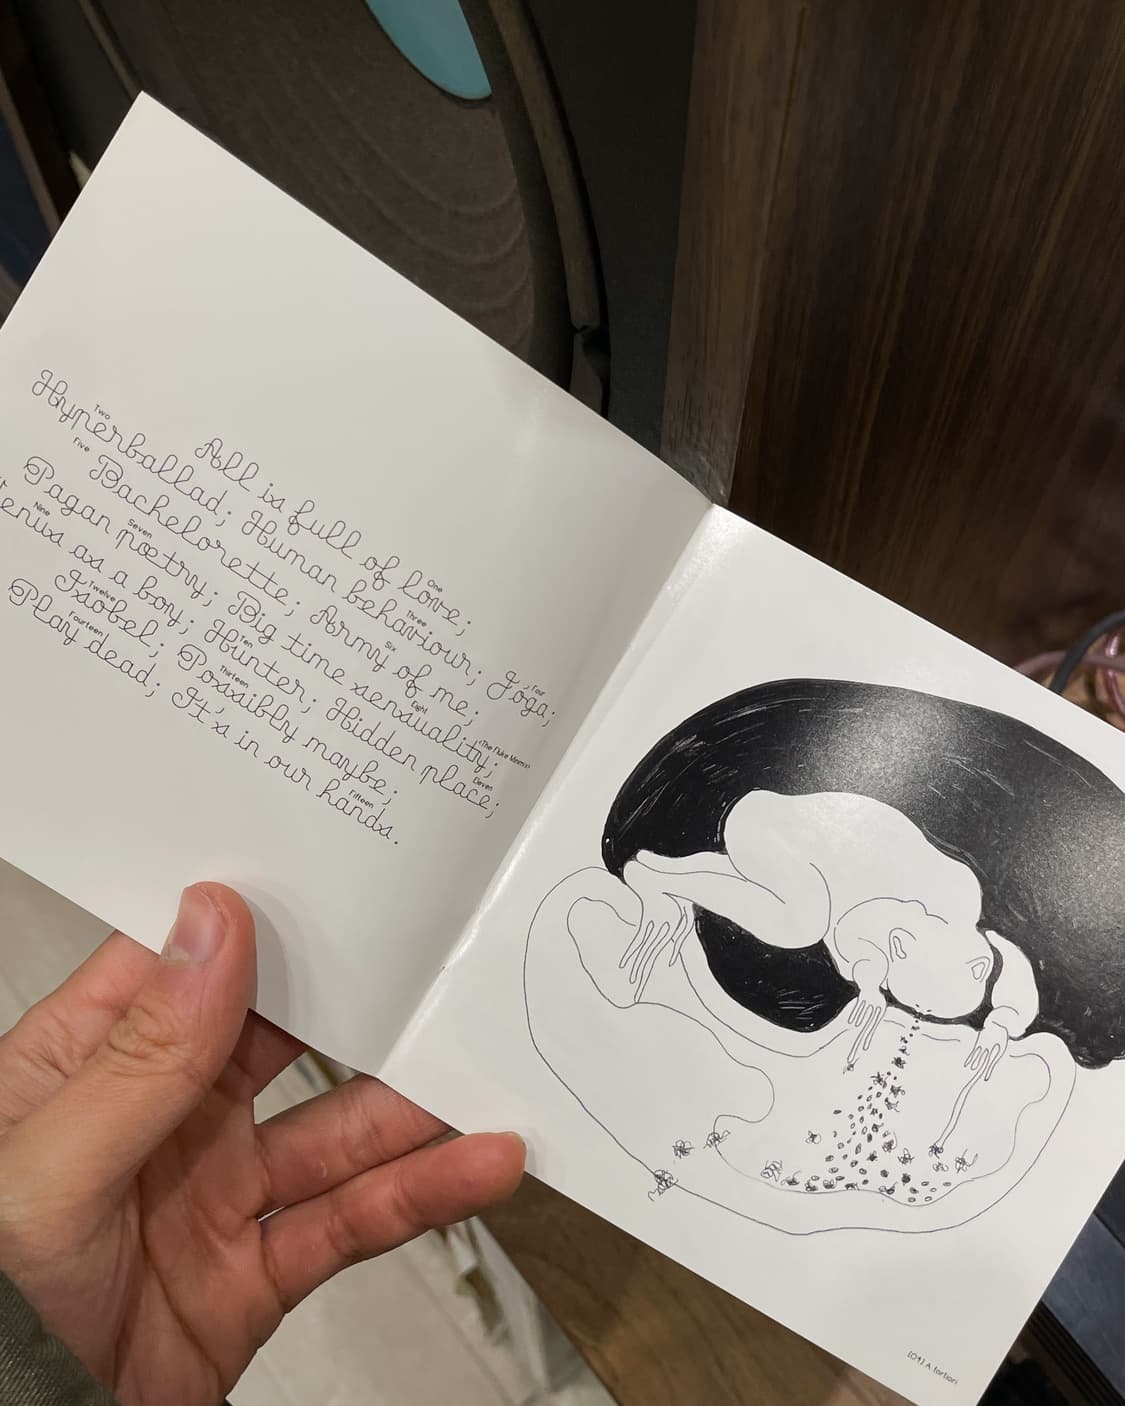 All is full of love;
One
Two
Hyperballad; Human behaviour; Jóga;
Three
Four
Five
Bachelorette; Army of me;
Six
Pagan poetry; Big time sensuality;
Seven
Eight
(The Fluke Minimix)
enus as a boy; Hunter; Hidden place;
Nine
Ten
Eleven
Isobel; Possibly maybe;
Twelve
Thirteen
Play dead; It's in our hands.
Fourteen
Fifteen
A fortiori